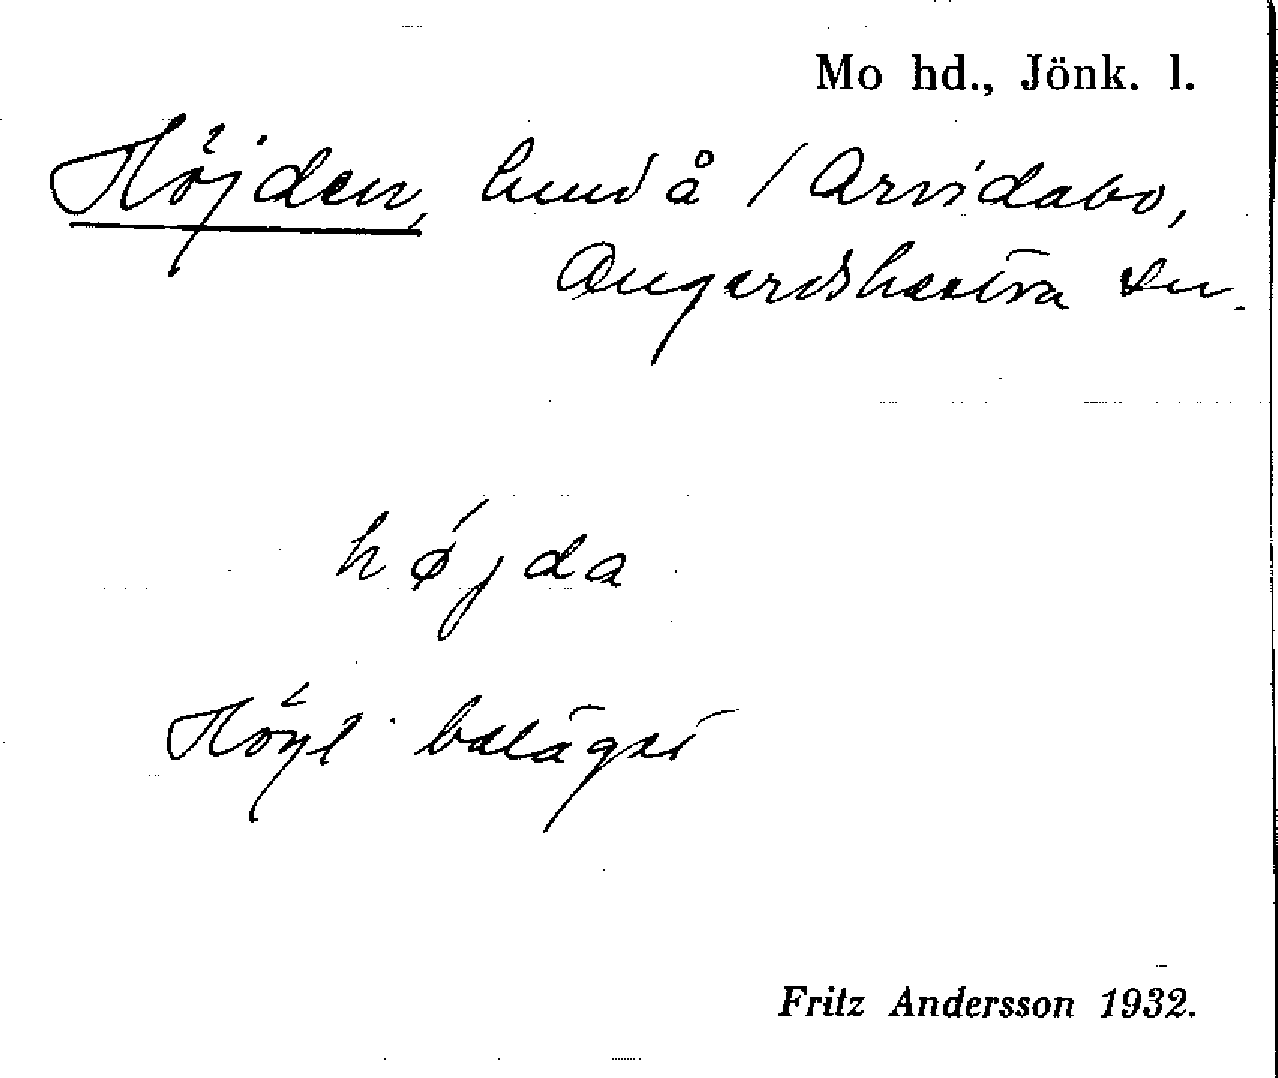 Mo hd., Jönk. l.
Höjden, hmd å 1 Arvidabo,
Ångerdshestra sn.
hø´jda
Högt beläget
Fritz Andersson 1932.